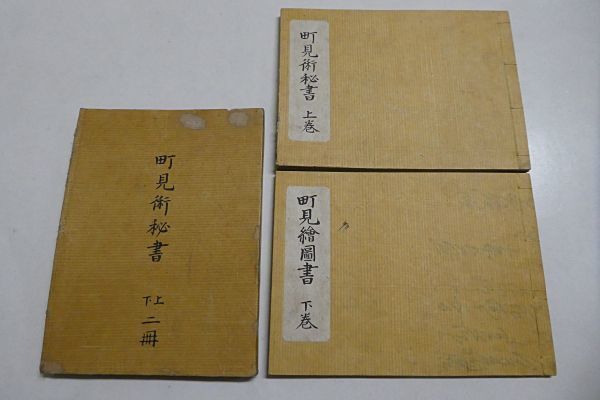 町見術秘書
上下
二冊
町見術秘書
上巻
町見繪圖書
下巻